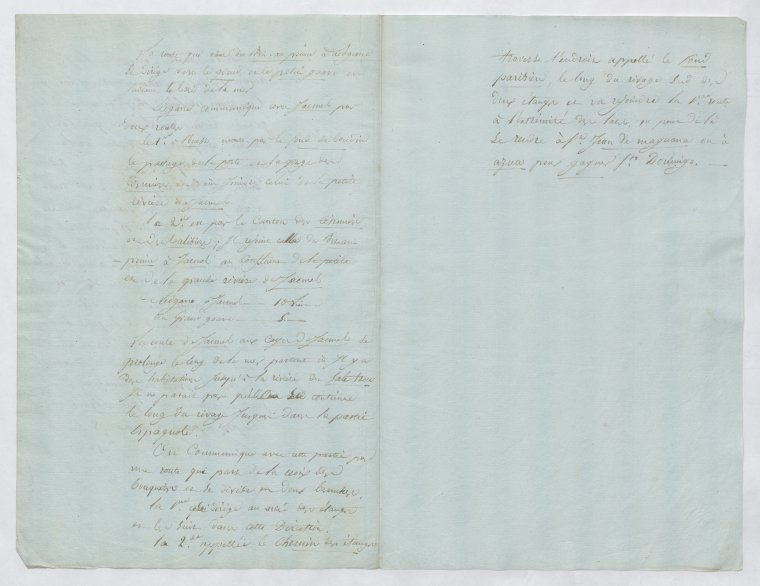 La route qui vient du Port au prince à Léogane
se dirige vers le grand et le petit goave en
suivant le bord de la mer
Léogane communique avec Jacmel par
deux routes
la 1re passe par le fond de boudin
le passage de la porte et la gorge des
et vient joindre celui de la petite
rivière de Jacmel
la 2de va par le Canton des
et Des Citronniers; Il rejoint celle du Port au
prince à Jacmel au Confluent de la petite
et de la grande rivière de Jacmel
Léogane à Jacmel 10
au Grand goave 5
La route de Jacmel aux Cayes de Jacmel se
prolonge le long de la mer partout où Il y a
des habitations Jusqu'à la rivière du Sale trou
Il ne parait pas qu'elle continue
le long du rivage Jusques dans la partie
Espagnole.
On Communique avec cette partie par
une route qui part de la croix des
bouquets et se divise en deux branches.
la 1re se dirige au nord des étangs
et les suit dans cette Direction.
la 2de appellée le Chemin des étangs
traverse l'endroit appellé le fond
parisien, le long du rivage Sud des
deux étangs et va rejoindre la 1re route
à l'extrémité des lacs, ou pour de là
Se rendre à St. Jean de maguana ou à
azua pour gagner Sto Domingo.